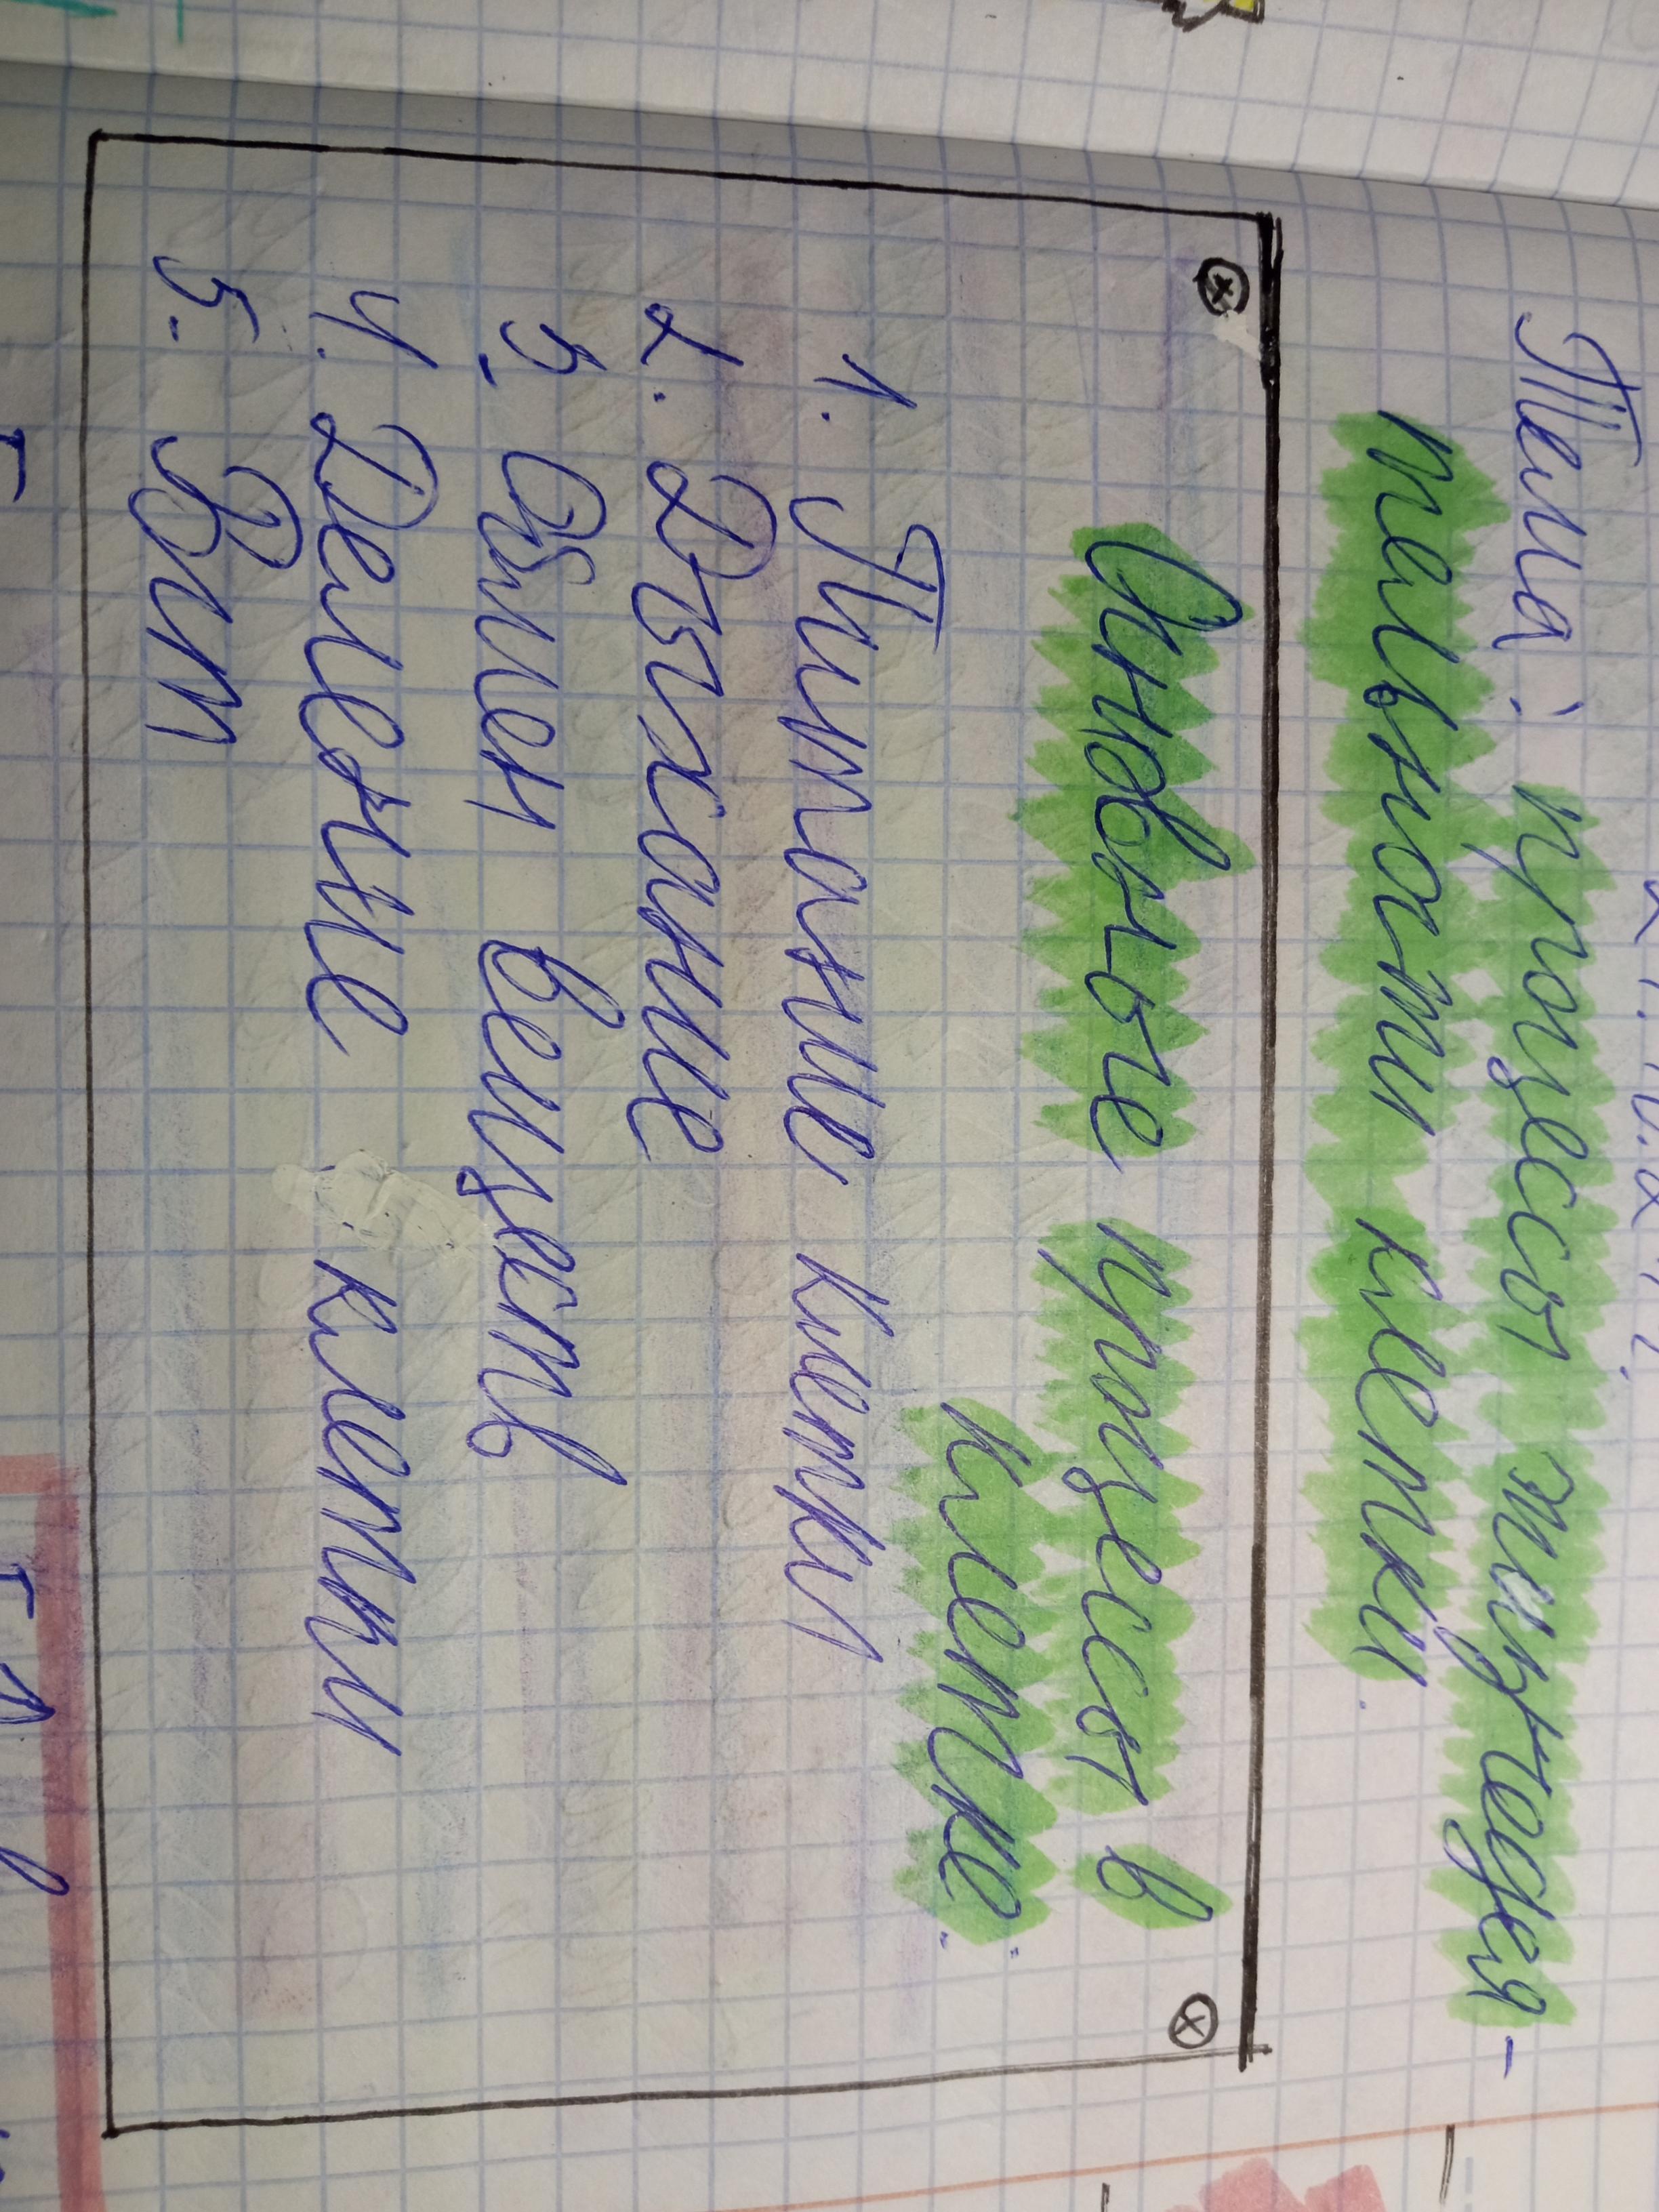 Тема: процессы жизтедея-
тельности клетки.
Основные процессы в
клетке:
1. Питание клетки
2. Дыхание
3. Обмен веществ
4. Деление клетки
5. Рост